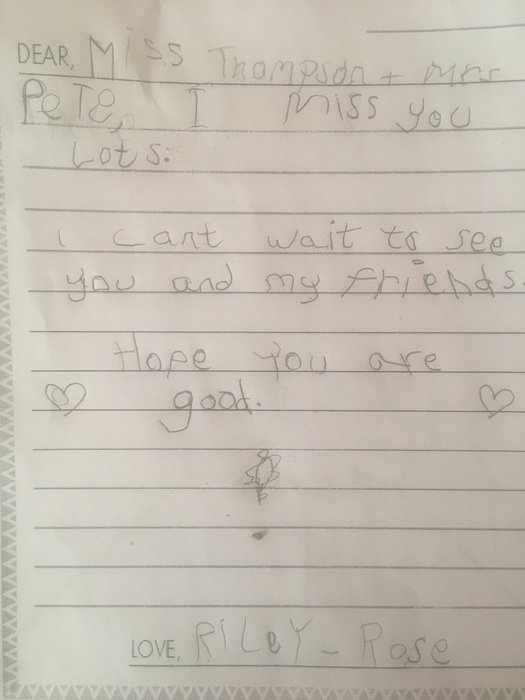 DEAR, Miss Thompson + Mrs
PeTe, I Miss you
Lots.
i cant wait to see
you and my friends.
Hope you are
good.
LOVE, RiLeY-Rose